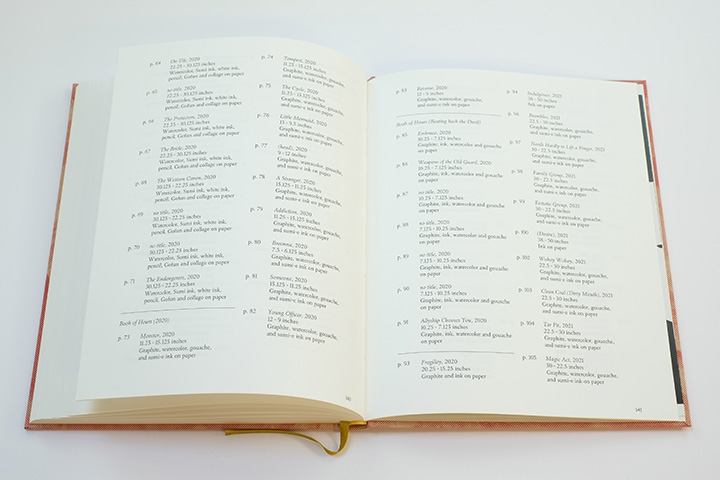 p. 64 On Tilt, 2020
22.25 × 30.125 inches
Watercolor, Sumi ink, white ink,
pencil, Gofun and collage on paper
p. 65 no title, 2020
22.25 × 30.125 inches
Watercolor, Sumi ink, white ink,
pencil, Gofun and collage on paper
p. 66 The Protectors, 2020
22.25 × 30.125 inches
Watercolor, Sumi ink, white ink,
pencil, Gofun and collage on paper
p. 67 The Bride, 2020
22.25 × 30.125 inches
Watercolor, Sumi ink, white ink,
pencil, Gofun and collage on paper
p. 68 The Women Coven, 2020
30.125 × 22.25 inches
Watercolor, Sumi ink, white ink,
pencil, Gofun and collage on paper
p. 69 no title, 2020
30.125 × 22.25 inches
Watercolor, Sumi ink, white ink,
pencil, Gofun and collage on paper
p. 70 no title, 2020
30.125 × 22.25 inches
Watercolor, Sumi ink, white ink,
pencil, Gofun and collage on paper
p. 71 The Endangerers, 2020
30.125 × 22.25 inches
Watercolor, Sumi ink, white ink,
pencil, Gofun and collage on paper
Book of Hours (2020)
p. 73 Monster, 2020
11.25 × 15.125 inches
Graphite, watercolor, gouache,
and sumi-e ink on paper
p. 74 Tempest, 2020
11.25 × 15.125 inches
Graphite, watercolor, gouache,
and sumi-e ink on paper
p. 75 The Cycle, 2020
11.25 × 15.125 inches
Graphite, watercolor, gouache,
and sumi-e ink on paper
p. 76 Little Mermaid, 2020
13 × 9.5 inches
Graphite, watercolor, gouache,
and sumi-e ink on paper
p. 77 (head), 2020
9 × 12 inches
Graphite, watercolor, gouache,
and sumi-e ink on paper
p. 78 A Stranger, 2020
15.125 × 11.25 inches
Graphite, watercolor, gouache,
and sumi-e ink on paper
p. 79 Addiction, 2020
11.25 × 15.125 inches
Graphite, watercolor, gouache,
and sumi-e ink on paper
p. 80 2020
7.5 × 6.125 inches
Graphite, watercolor, gouache,
and sumi-e ink on paper
p. 81 Someone, 2020
15.125 × 11.25 inches
Graphite, watercolor, gouache,
and sumi-e ink on paper
p. 82 Young Officer, 2020
12 × 9 inches
Graphite, watercolor, gouache,
and sumi-e ink on paper
140
p. 83 2020
12 × 9 inches
Graphite, watercolor, gouache,
and sumi-e ink on paper
Book of Hours (Beating back the Devil)
p. 85 Embrace, 2020
10.25 × 7.125 inches
Graphite, ink, watercolor and gouache
on paper
p. 86 Weapons of the Old Guard, 2020
10.25 × 7.125 inches
Graphite, ink, watercolor and gouache
on paper
p. 87 no title, 2020
10.25 × 7.125 inches
Graphite, ink, watercolor and gouache
on paper
p. 88 no title, 2020
7.125 × 10.25 inches
Graphite, ink, watercolor and gouache
on paper
p. 89 no title, 2020
7.125 × 10.25 inches
Graphite, ink, watercolor and gouache
on paper
p. 90 no title, 2020
7.125 × 10.25 inches
Graphite, ink, watercolor and gouache
on paper
p. 91 Allyship Chooses You, 2020
10.25 × 7.125 inches
Graphite, ink, watercolor and gouache
on paper
p. 93 Fragility, 2020
20.25 × 15.25 inches
Graphite and ink on paper
p. 94 Indulgences, 2021
38 × 50 inches
Graphite, watercolor, gouache,
and sumi-e ink on paper
p. 96 Brambles, 2021
22.5 × 30 inches
Graphite, watercolor, gouache,
and sumi-e ink on paper
p. 97 Needs Hardly to Lift a Finger, 2021
30 × 22.5 inches
Graphite, watercolor, gouache,
and sumi-e ink on paper
p. 98 Family Group, 2021
30 × 22.5 inches
Graphite, watercolor, gouache,
and sumi-e ink on paper
p. 99 Ecstatic Group, 2021
30 × 22.5 inches
Graphite, watercolor, gouache,
and sumi-e ink on paper
p. 100 (Desire), 2021
38 × 50 inches
Graphite, watercolor, gouache,
and sumi-e ink on paper
p. 102 Wakey Wakey, 2021
22.5 × 30 inches
Graphite, watercolor, gouache,
and sumi-e ink on paper
p. 103 Clean Coal (Dirty Mouth), 2021
22.5 × 30 inches
Graphite, watercolor, gouache,
and sumi-e ink on paper
p. 104 Tar Pit, 2021
22.5 × 30 inches
Graphite, watercolor, gouache,
and sumi-e ink on paper
p. 105 Magic Act, 2021
30 × 22.5 inches
Graphite, watercolor, gouache,
and sumi-e ink on paper
141